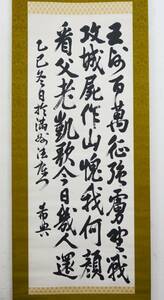 王師百萬征强虜野戰
攻城屍作山愧我何顔
看父老凱歌今日幾人還
乙巳冬日於滿洲法庫門 希典